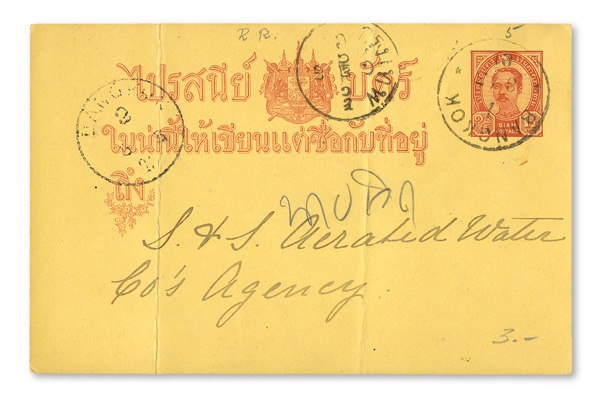 R.R.
5
ไปรสนีย์ บัตร์
ในน่านี้ให้เขียนแต่ชื่อกับที่อยู่
ถึง
BANGKOK
BANGKOK
SIAM
POSTAGE
S. & S. Aerated Water
Co's Agency.
3.-